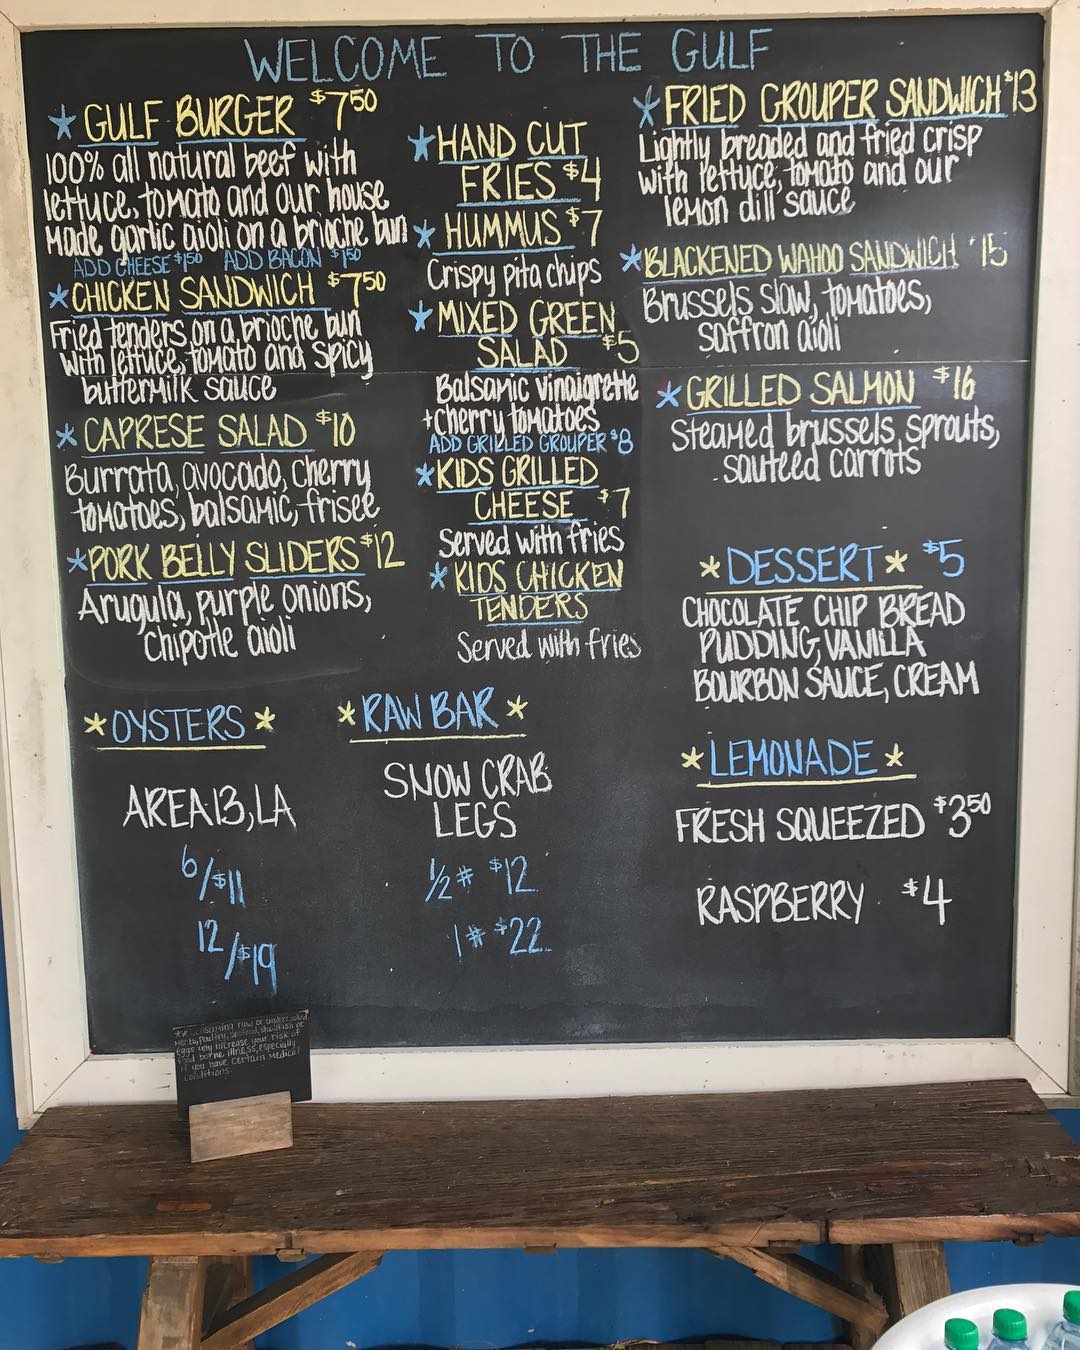 WELCOME TO THE GULF
* GULF BURGER $7.50
100% all natural beef with
lettuce, tomato and our house
made garlic aioli on a brioche bun
ADD CHEESE $1.50 ADD BACON $1.50
* CHICKEN SANDWICH $7.50
Fried tenders on a brioche bun
with lettuce, tomato and spicy
buttermilk sauce
* CAPRESE SALAD $10
Burrata, avocado, cherry
tomatoes, balsamic, frisee
* PORK BELLY SLIDERS $12
Arugula, purple onions,
chipotle aioli
* HAND CUT
FRIES $4
* HUMMUS $7
Crispy pita chips
* MIXED GREEN
SALAD $5
Balsamic vinaigrette
+ cherry tomatoes
ADD GRILLED GROUPER $8
* KIDS GRILLED
CHEESE $7
Served with fries
* KIDS CHICKEN
TENDERS
Served with fries
* FRIED GROUPER SANDWICH $13
Lightly breaded and fried crisp
with lettuce, tomato and our
lemon dill sauce
* BLACKENED WAHOO SANDWICH 15
Brussels slaw, tomatoes,
saffron aioli
* GRILLED SALMON $16
Steamed brussels sprouts,
sauteed carrots
* DESSERT * $5
CHOCOLATE CHIP BREAD
PUDDING, VANILLA
BOURBON SAUCE, CREAM
* LEMONADE *
FRESH SQUEEZED $3.50
RASPBERRY $4
* OYSTERS *
AREA 13, LA
6/$11
12/$19
* RAW BAR *
SNOW CRAB
LEGS
1/2 # $12
1 # $22
** Consuming raw or undercooked
meats, poultry, seafood, shellfish or
eggs may increase your risk of
food borne illness, especially
if you have certain medical
conditions.